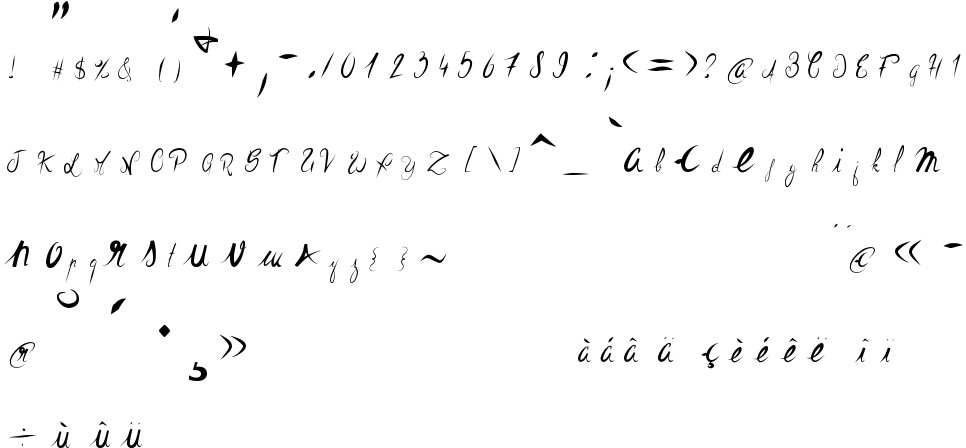 ! " # $ % & ' ( ) * + , - . / 0 1 2 3 4 5 6 7 8 9 : ; < = > ? @ A B C D E F G H I
J K L M N O P Q R S T U V W X Y Z [ \ ] ^ _ ` a b c d e f g h i j k l m
n o p q r s t u v w x y z { } ~ ¨ © « ¯
® ° ´ · ¸ » à á â ä ç è é ê ë î ï
÷ ù û ü